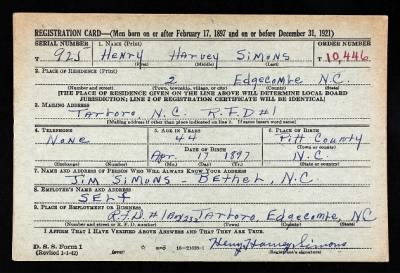 REGISTRATION CARD—(Men born on or after February 17, 1897 and on or before December 31, 1921)
SERIAL NUMBER 1. NAME (Print) ORDER NUMBER
T 925 Henry Harvey Simons T 10,446
(First) (Middle) (Last)
2. PLACE OF RESIDENCE (Print)
2 Edgecombe N.C.
(Number and street) (Town, township, village, or city) (County) (State)
[THE PLACE OF RESIDENCE GIVEN ON THE LINE ABOVE WILL DETERMINE LOCAL BOARD
JURISDICTION; LINE 2 OF REGISTRATION CERTIFICATE WILL BE IDENTICAL]
3. MAILING ADDRESS
Tarboro, N.C. R.F.D #1
[Mailing address if other than place indicated on line 2. If same insert word same]
4. TELEPHONE 5. AGE IN YEARS 6. PLACE OF BIRTH
None 44 Pitt County
DATE OF BIRTH (Town or county)
Apr. 17 1897 N.C.
(Exchange) (Number) (Mo.) (Day) (Yr.) (State or country)
7. NAME AND ADDRESS OF PERSON WHO WILL ALWAYS KNOW YOUR ADDRESS
Jim Simons - Bethel, N.C.
8. EMPLOYER'S NAME AND ADDRESS
Self
9. PLACE OF EMPLOYMENT OR BUSINESS
R.F.D. #1 Tarboro, Edgecombe, NC
(Number and street or R. F. D. number) (Town) (County) (State)
I AFFIRM THAT I HAVE VERIFIED ABOVE ANSWERS AND THAT THEY ARE TRUE.
D. S. S. Form 1
(Revised 1-1-42) Henry Harvey Simons
(Registrant's signature)